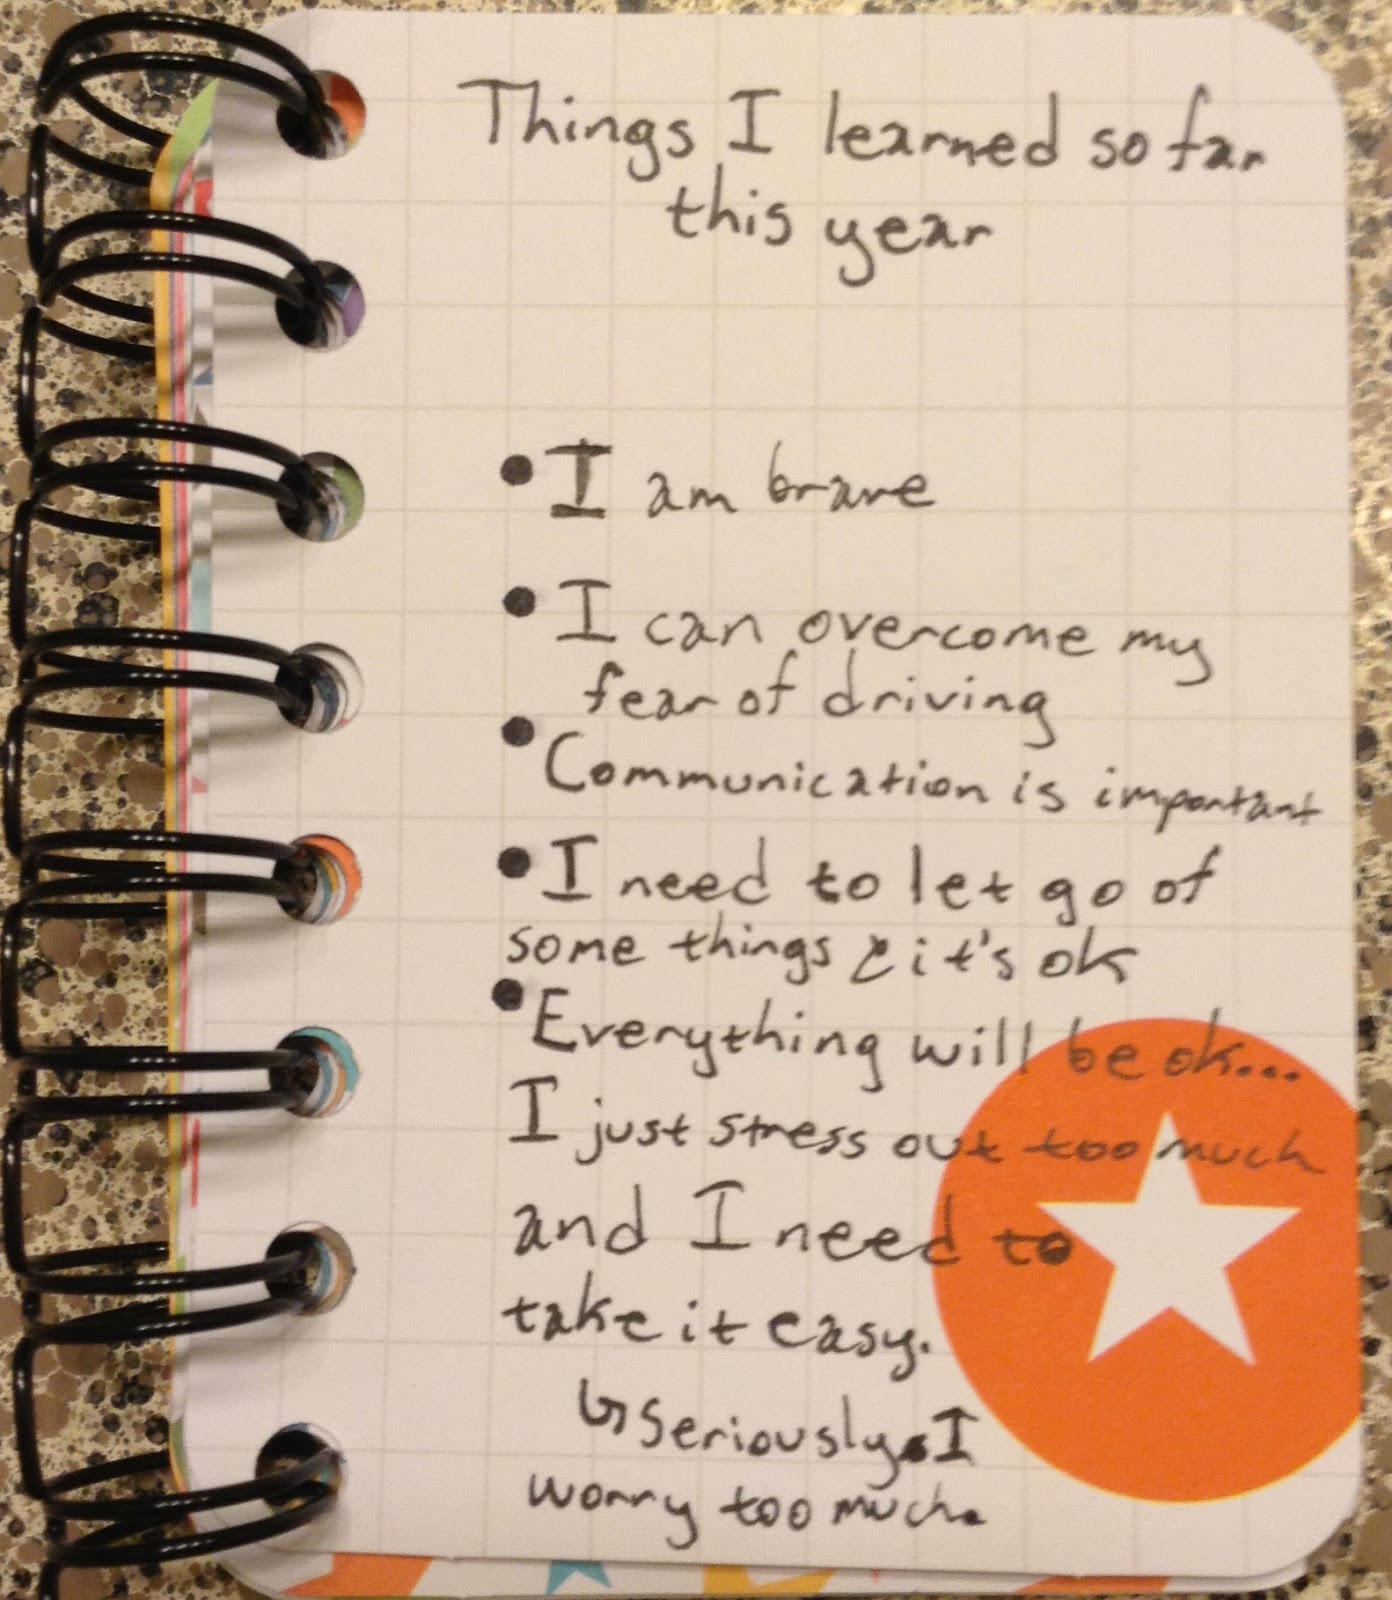 Things I learned so far
this year
• I am brave
• I can overcome my
fear of driving
• Communication is important
• I need to let go of
some things & it's ok
• Everything will be ok...
I just stress out too much
and I need to
take it easy.
↳ Seriously. I
worry too much.